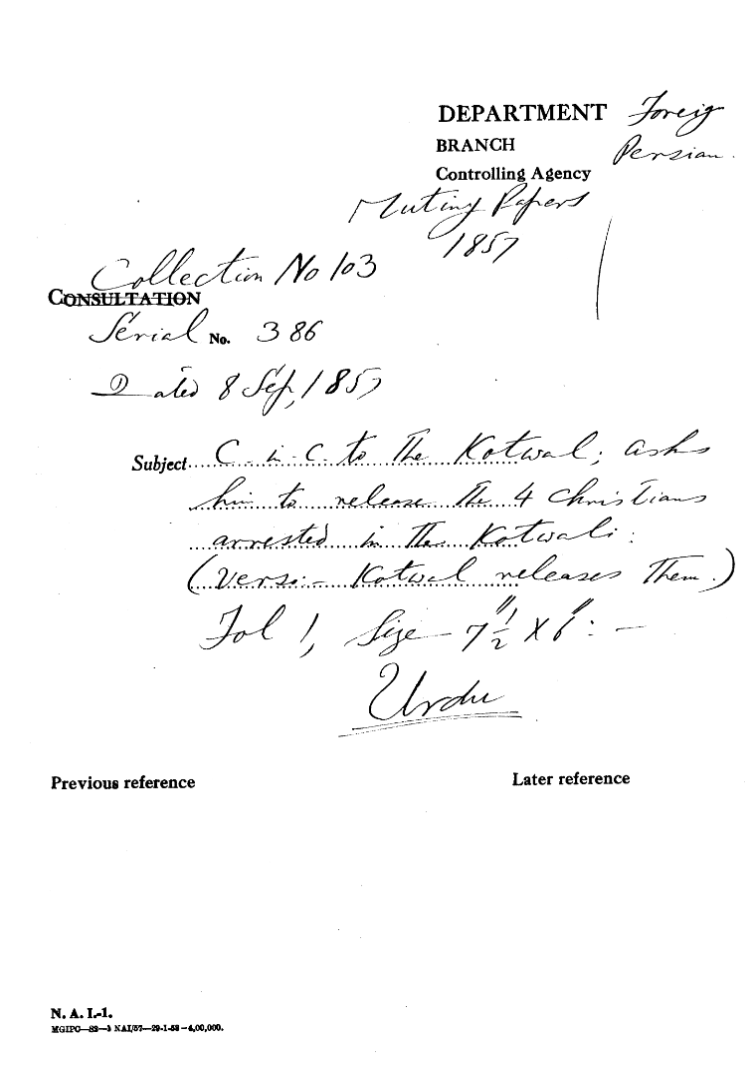 DEPARTMENT Foreig
BRANCH Persian.
Controlling Agency
Mutiny Papers
1857
Collection No 103
CONSULTATION
Serial No. 386
Dated 8 Sep, 1857
Subject C-in-C. to the Kotwal; asks
him to release the 4 Christians
arrested in the Kotwali:
(Verso:- Kotwal releases Them.)
Fol 1, Size 7½" X 6": —
Urdu
Previous reference
Later reference
N. A. I.-1.
MGIPC—83—3 NAI/57—29-1-58—4,00,000.